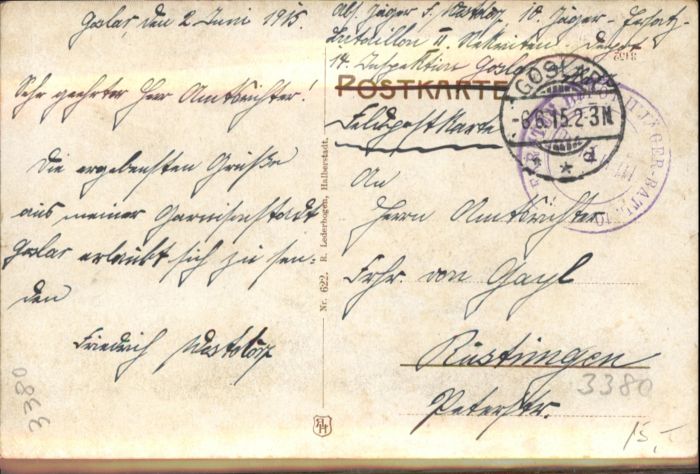 Goslar, den 2 Juni 1915.
Sehr geehrter Herr Amtsrichter!
Die ergebensten Grüße
aus meiner Garnisonstadt
Goslar erlaubt sich zu sen-
den
Friedrich
Abs. Jäger F. 10. Jäger-Ersatz-
Bataillon II. Rekruten-Depot
14. Inspektion Goslar
POSTKARTE
Feldpostkarte
GOSLAR
-6.6.15.2-3N
* d
JÄGER-BATL. No
An
Herrn Amtsrichter
Frhr. von Gayl
Rüstringen
Peterstr.
Nr. 622. R. Lederbogen, Halberstadt.
3380
3380
15,-